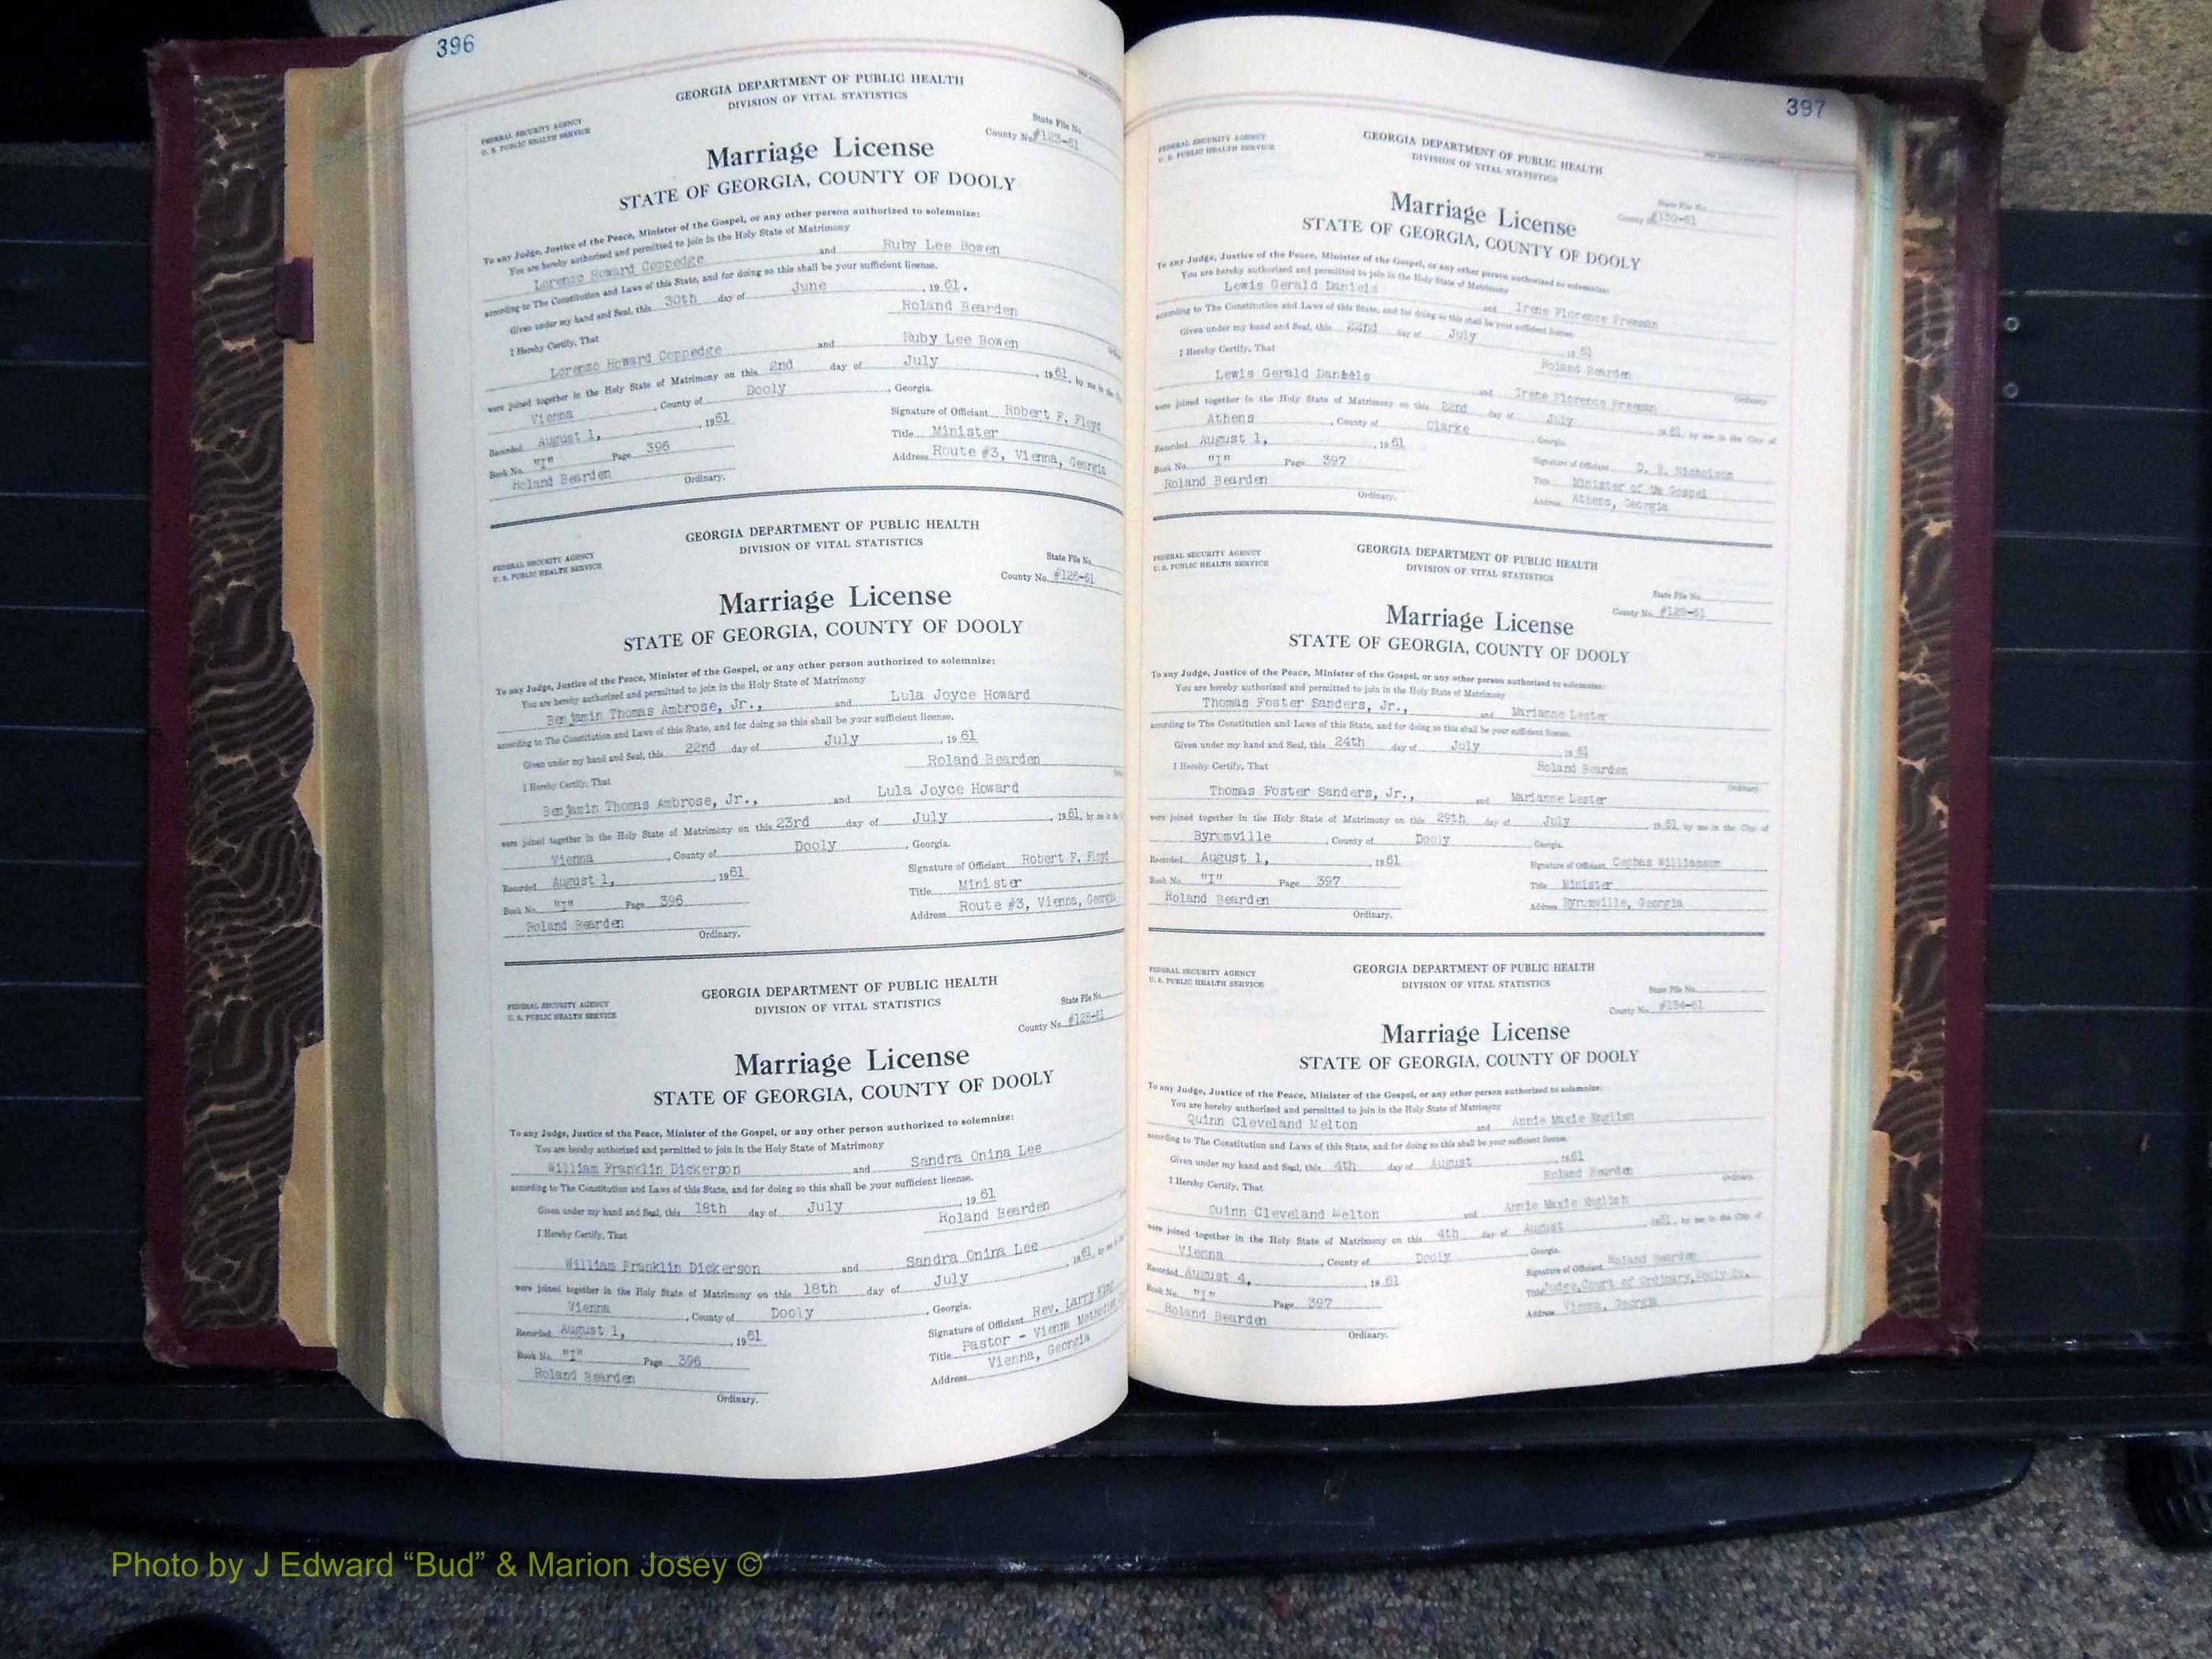 396
GEORGIA DEPARTMENT OF PUBLIC HEALTH
DIVISION OF VITAL STATISTICS
FEDERAL SECURITY AGENCY
U. S. PUBLIC HEALTH SERVICE
State File No.
County No. #123-61
Marriage License
STATE OF GEORGIA, COUNTY OF DOOLY
To any Judge, Justice of the Peace, Minister of the Gospel, or any other person authorized to solemnize:
You are hereby authorized and permitted to join in the Holy State of Matrimony
Lorenzo Howard Coppedge and Ruby Lee Bowen
according to The Constitution and Laws of this State, and for doing so this shall be your sufficient license.
Given under my hand and Seal, this 30th day of June, 1961.
Roland Bearden
I Hereby Certify, That
Lorenzo Howard Coppedge and Ruby Lee Bowen
were joined together in the Holy State of Matrimony on this 2nd day of July, 1961, by me in the
Vienna, County of Dooly, Georgia.
Recorded August 1, 1961
Signature of Officiant Robert F. Floyd
Book No. "I" Page 396
Title Minister
Roland Bearden
Address Route #3, Vienna, Georgia
Ordinary.
GEORGIA DEPARTMENT OF PUBLIC HEALTH
DIVISION OF VITAL STATISTICS
FEDERAL SECURITY AGENCY
U. S. PUBLIC HEALTH SERVICE
State File No.
County No. #126-61
Marriage License
STATE OF GEORGIA, COUNTY OF DOOLY
To any Judge, Justice of the Peace, Minister of the Gospel, or any other person authorized to solemnize:
You are hereby authorized and permitted to join in the Holy State of Matrimony
Benjamin Thomas Ambrose, Jr., and Lula Joyce Howard
according to The Constitution and Laws of this State, and for doing so this shall be your sufficient license.
Given under my hand and Seal, this 22nd day of July, 1961
Roland Bearden
I Hereby Certify, That
Benjamin Thomas Ambrose, Jr., and Lula Joyce Howard
were joined together in the Holy State of Matrimony on this 23rd day of July, 1961, by me in the
Vienna, County of Dooly, Georgia.
Recorded August 1, 1961
Signature of Officiant Robert F. Floyd
Book No. "I" Page 396
Title Minister
Roland Bearden
Address Route #3, Vienna, Georgia
Ordinary.
GEORGIA DEPARTMENT OF PUBLIC HEALTH
DIVISION OF VITAL STATISTICS
FEDERAL SECURITY AGENCY
U. S. PUBLIC HEALTH SERVICE
State File No.
County No. #128-61
Marriage License
STATE OF GEORGIA, COUNTY OF DOOLY
To any Judge, Justice of the Peace, Minister of the Gospel, or any other person authorized to solemnize:
You are hereby authorized and permitted to join in the Holy State of Matrimony
William Franklin Dickerson and Sandra Onina Lee
according to The Constitution and Laws of this State, and for doing so this shall be your sufficient license.
Given under my hand and Seal, this 18th day of July, 1961
Roland Bearden
I Hereby Certify, That
William Franklin Dickerson and Sandra Onina Lee
were joined together in the Holy State of Matrimony on this 18th day of July, 1961, by me in the
Vienna, County of Dooly, Georgia.
Recorded August 1, 1961
Signature of Officiant Rev. Larry King
Book No. "I" Page 396
Title Pastor - Vienna Methodist
Roland Bearden
Address Vienna, Georgia
Ordinary.
397
GEORGIA DEPARTMENT OF PUBLIC HEALTH
DIVISION OF VITAL STATISTICS
FEDERAL SECURITY AGENCY
U. S. PUBLIC HEALTH SERVICE
State File No.
County
Marriage License
STATE OF GEORGIA, COUNTY OF DOOLY
To any Judge, Justice of the Peace, Minister of the Gospel, or any other person authorized to solemnize:
You are hereby authorized and permitted to join in the Holy State of Matrimony
Lewis Gerald Daniels and Irene Florence Freeman
according to The Constitution and Laws of this State, and for doing so this shall be your sufficient license.
Given under my hand and Seal, this 22nd day of July 1961
Roland Bearden
Ordinary.
I Hereby Certify, That
Lewis Gerald Daniels and Irene Florence Freeman
were joined together in the Holy State of Matrimony on this 22nd day of July, 1961, by me in the City of
Athens, County of Clarke, Georgia.
Recorded August 1, 1961
Signature of Officiant Nicholson
Book No. "I" Page 397
Title Minister of the Gospel
Roland Bearden
Address Athens, Georgia
Ordinary.
GEORGIA DEPARTMENT OF PUBLIC HEALTH
DIVISION OF VITAL STATISTICS
FEDERAL SECURITY AGENCY
U. S. PUBLIC HEALTH SERVICE
State File No.
County No. #129-61
Marriage License
STATE OF GEORGIA, COUNTY OF DOOLY
To any Judge, Justice of the Peace, Minister of the Gospel, or any other person authorized to solemnize:
You are hereby authorized and permitted to join in the Holy State of Matrimony
Thomas Foster Sanders, Jr., and Marianne Lester
according to The Constitution and Laws of this State, and for doing so this shall be your sufficient license.
Given under my hand and Seal, this 24th day of July, 1961
Roland Bearden
Ordinary.
I Hereby Certify, That
Thomas Foster Sanders, Jr., and Marianne Lester
were joined together in the Holy State of Matrimony on this 29th day of July, 1961, by me in the City of
Byromville, County of Dooly, Georgia.
Recorded August 1, 1961
Signature of Officiant Cephas Williamson
Book No. "I" Page 397
Title Minister
Roland Bearden
Address Byromville, Georgia
Ordinary.
GEORGIA DEPARTMENT OF PUBLIC HEALTH
DIVISION OF VITAL STATISTICS
FEDERAL SECURITY AGENCY
U. S. PUBLIC HEALTH SERVICE
State File No.
County No. #134-61
Marriage License
STATE OF GEORGIA, COUNTY OF DOOLY
To any Judge, Justice of the Peace, Minister of the Gospel, or any other person authorized to solemnize:
You are hereby authorized and permitted to join in the Holy State of Matrimony
Quinn Cleveland Melton and Annie Maxie English
according to The Constitution and Laws of this State, and for doing so this shall be your sufficient license.
Given under my hand and Seal, this 4th day of August, 1961
Roland Bearden
Ordinary.
I Hereby Certify, That
Quinn Cleveland Melton and Annie Maxie English
were joined together in the Holy State of Matrimony on this 4th day of August, 1961, by me in the City of
Vienna, County of Dooly, Georgia.
Recorded August 4, 1961
Signature of Officiant Roland Bearden
Book No. "I" Page 397
Title Judge, Court of Ordinary, Dooly Co.
Roland Bearden
Address Vienna, Georgia
Ordinary.
Photo by J Edward “Bud” & Marion Josey ©